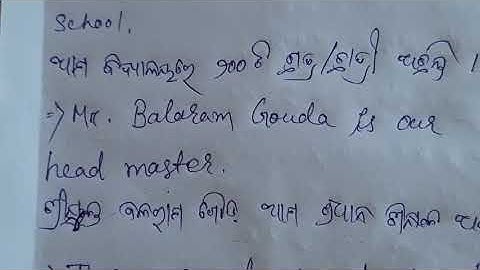 School.
ଆମ ବିଦ୍ୟାଳୟରେ ୨୦୦ ଟି ଛାତ୍ର/ଛାତ୍ରୀ ଅଛନ୍ତି ।
=> Mr. Balaram Gouda is our
head master.
ବଳରାମ ଗୌଡ଼ ଆମ ପ୍ରଧାନ ଶିକ୍ଷକ